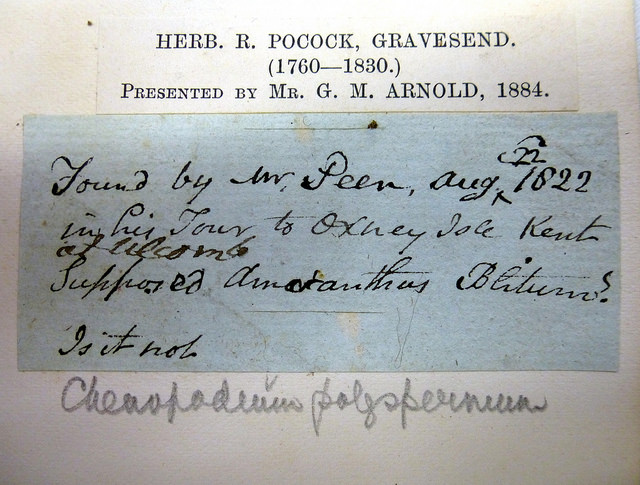 HERB. R. POCOCK, GRAVESEND.
(1760—1830.)
PRESENTED BY MR. G. M. ARNOLD, 1884.
22
Found by Mr. Peen, Aug, 1822
in his Tour to Oxney Isle Kent
at Ulcomb
Supposed Amaranthus Blitum?
Is it not
Chenopodium polyspermum